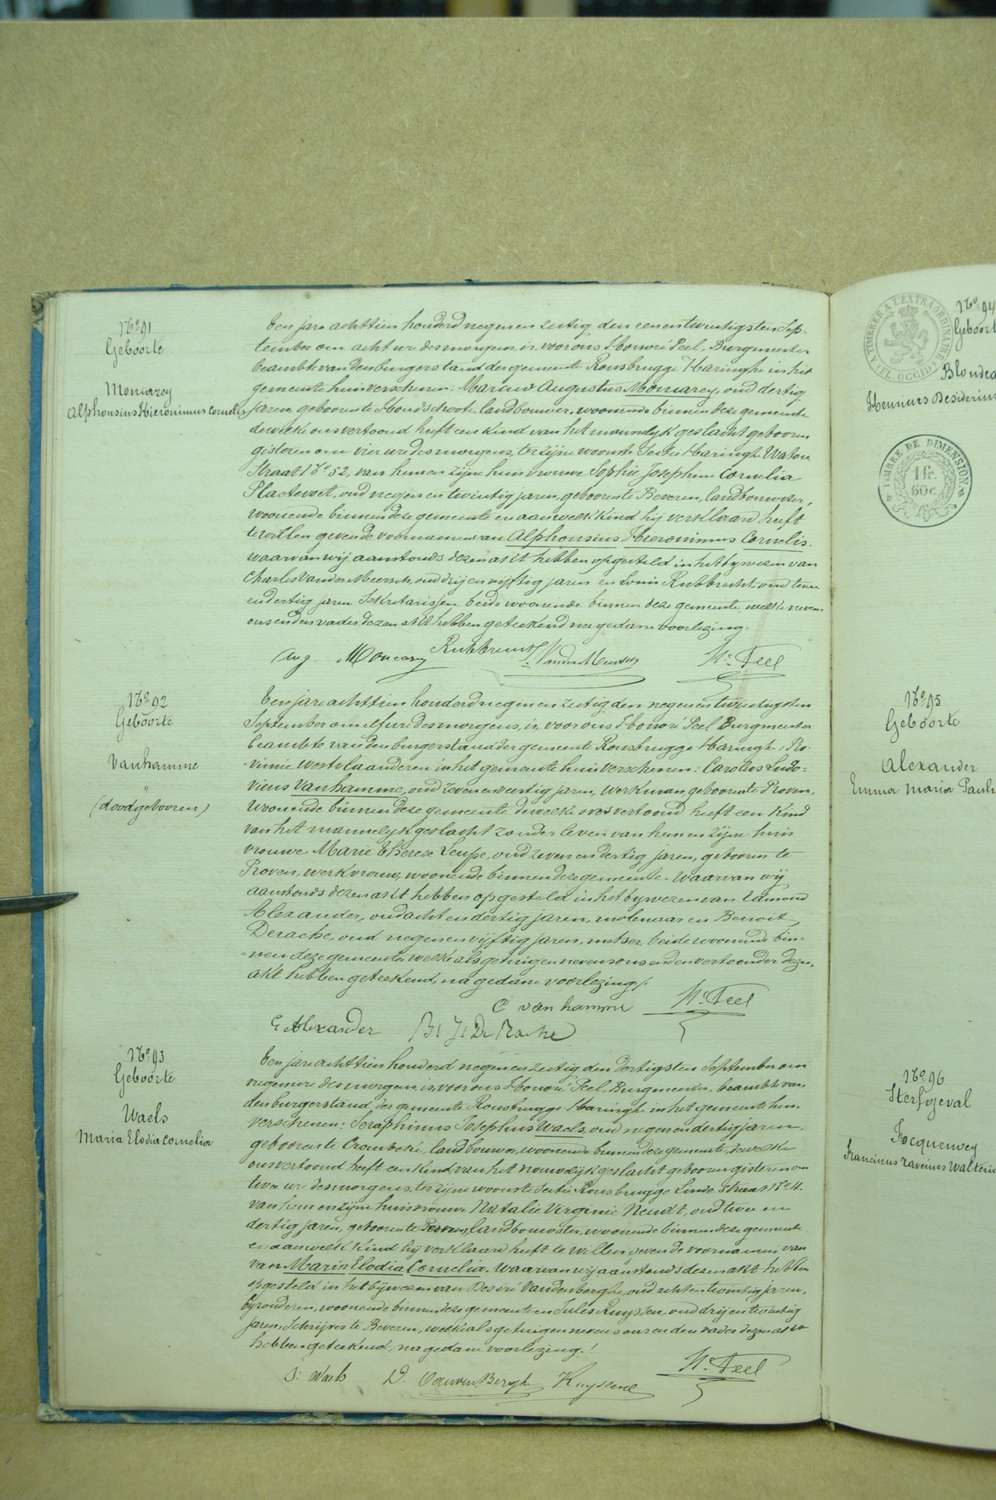 No 91
Geboorte
Moncarey
Alphonsius Hieronimus Cornelis
Een jare achttien honderd negen en zestig den eenentwintigsten Sep-
tember om acht ure des morgens, is voor ons Honoré Feel, Burgmeester
beambte van den burgerstand der gemeente Rousbrugge Haringhe in het
gemeente huis verschenen: Marius Augustus Moncarey, oud dertig
jaren, geboren te Hondschoote, landbouwer, woonende binnen deze gemeente
dewelke ons vertoond heeft een kind van het mannelijk geslacht geboren
gisteren om vier ure des morgens, ter zijne woonste Sectie Haringhe Waton
Straat No 52, van hem en zijne huisvrouwe Sophie Josephine Cornelia
Plaetevoet, oud negen en twintig jaren, geboren te Beveren, landbouwster,
woonende binnen deze gemeente en aan welk kind hij verklaard heeft
te willen geven de voornamen van Alphonsius Hieronimus Cornelis.
waarvan wij aanstonds dezen akt hebben opgesteld in het bijwezen van
Charles Vander Meersch, oud drij en vijftig jaren en Louis Rubbrecht, oud
en dertig jaren Sekretarissen beide woonende binnen deze gemeente welke nevens
ons en den vader dezen akt hebben geteekend na gedane voorlezing.
Aug. Moncarey Rubbrecht C. Vander Meersch Hre Feel
No 92
Geboorte
Vanhamme
"
(doodgebooren)
Een jare achttien honderd negen en zestig den negenentwintigsten
September om elf ure des morgens, is voor ons Honoré Feel Burgmeester
beambte van den burgerstand der gemeente Rousbrugge Haringhe, Pro-
vincie Westvlaanderen in het gemeente huis verschenen: Carolus Ludo-
vicus Vanhamme, oud zevenenveertig jaren, werkman, geboren te Proven,
woonende binnen deze gemeente dewelke ons vertoond heeft een kind
van het mannelijk geslacht zonder leven van hem en zijne huis
vrouwe Marie Therese Leupe, oud zeven en dertig jaren, geboren te
Proven, werkvrouw, woonende binnen deze gemeente. Waarvan wij
aanstonds dezen akt hebben opgesteld in het bijwezen van Edmond
Alexander, oud acht en dertig jaren, molenaar en Benoit
Derache, oud negen en vijftig jaren, metser beide woonende bin-
nen deze gemeente, welke als getuigen nevens ons en den vertooner dezen
akt hebben geteekend, na gedane voorlezing.
C van hamme Hre Feel
E Alexander
No 93
Geboorte
Waels
Maria Elodia Cornelia
Een jare achttien honderd negen en zestig den dertigsten September om
negen ure des morgens, is voor ons Honoré Feel, Burgmeester, beambte van
den burgerstand der gemeente Rousbrugge Haringhe in het gemeente huis
verschenen: Seraphinus Josephus Waels, oud negen en dertig jaren,
geboren te Crombeke, landbouwer, woonende binnen deze gemeente, dewelke
ons vertoond heeft een kind van het vrouwelijk geslacht geboren gisteren om
twee ure des morgens, ter zijne woonste Sectie Rousbrugge Linde Straat No 4.
van hem en zijne huisvrouwe Natalie Virginie Neudt, oud twee en
dertig jaren, geboren te Proven, landbouwster, woonende binnen deze gemeente
en aan welk kind hij verklaard heeft te willen geven de voornamen van
van Maria Elodia Cornelia. Waarvan wij aanstonds dezen akt hebben
opgesteld in het bijwezen van Desiré Vandenberghe, oud acht en twintig jaren,
bijzonderen, woonende binnen deze gemeente en Jules Ruyssen, oud drij en twintig
jaren, Schrijver te Beveren, welke als getuigen nevens ons en den vader dezen akt
hebben geteekend, na gedane voorlezing.
S. Waels D. Vanden Berghe Ruyssen Hre Feel
No 94
Geboorte
Blondea
Henricus Desiderius
TIMBRE A L'EXTRAORDINAIRE
FL. OCCID.
TIMBRE DE DIMENSION
1 fr.
60 c.
No 95
Geboorte
Alexander
Emma Maria Paul
No 96
Sterfgeval
Jocquewey
Franciscus Xaverius Walteri